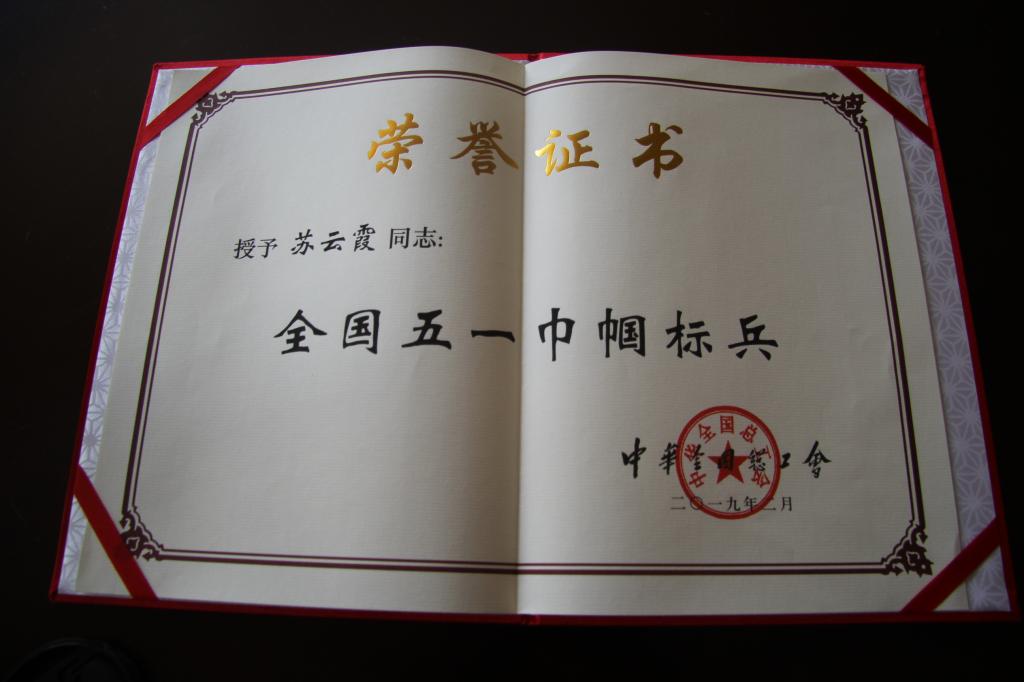 荣誉证书
授予 苏云霞 同志:
全国五一巾帼标兵
中華全国總工會
中华全国总工会
二〇一九年二月